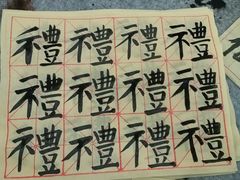 禮禮禮禮
禮禮禮禮
禮禮禮禮